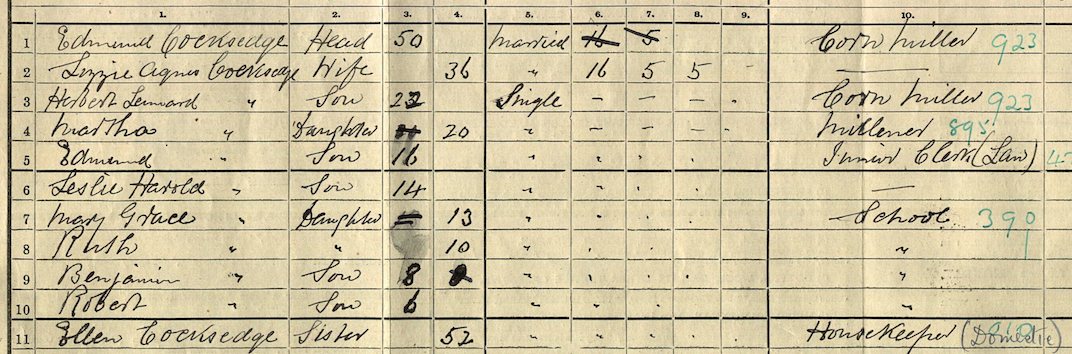 1. 2. 3. 4. 5. 6. 7. 8. 9. 10.
1 Edmund Cocksedge Head 50 Married 16 5 Corn Miller 923
2 Lizzie Agnes Cocksedge Wife 36 " 16 5 8 -
3 Herbert Leonard " Son 22 Single - - - - Corn Miller 923
4 Martha " Daughter 20 " - - - - Milliner 895
5 Edmund " Son 16 " Junior Clerk (Law)
6 Leslie Harold " Son 14 " —
7 Mary Grace " Daughter 13 " School 390
8 Ruth " " 10 " "
9 Benjamin " Son 8 " "
10 Robert " Son 6 " "
11 Ellen Cocksedge Sister 52 " HouseKeeper (Domestic)